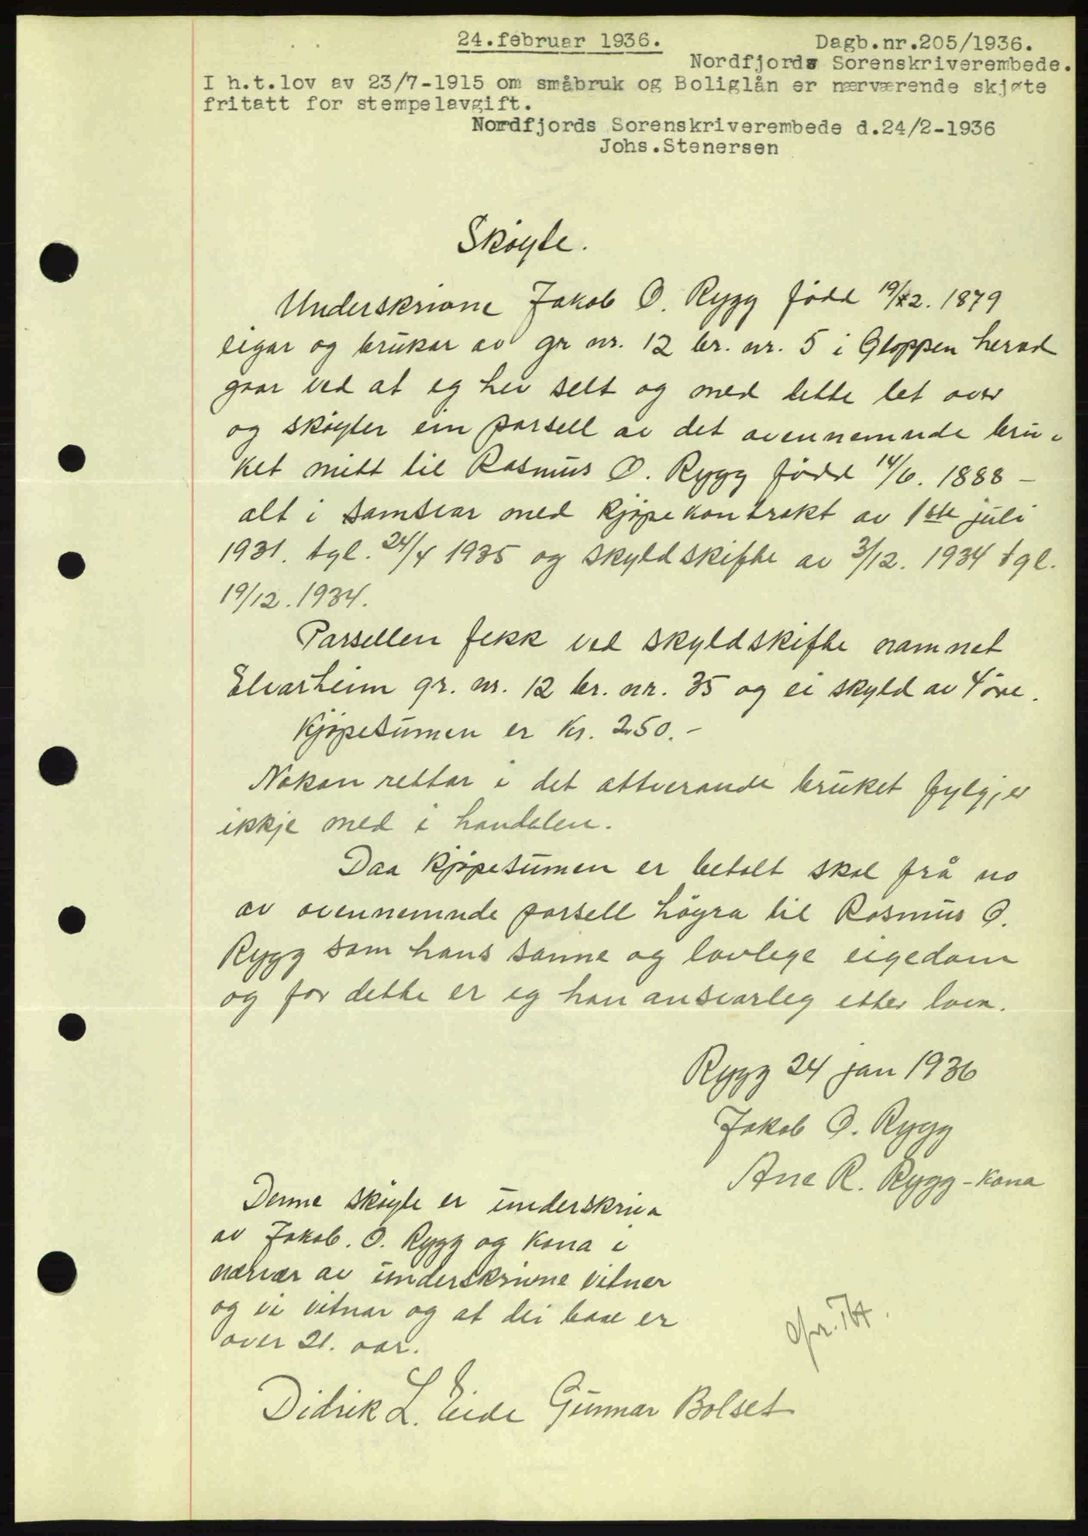 24.februar 1936.
Dagb.nr.205/1936.
Nordfjords Sorenskriverembede.
I h.t.lov av 23/7-1915 om småbruk og Boliglån er nærværende skjøte
fritatt for stempelavgift.
Nordfjords Sorenskriverembede d.24/2-1936
Johs.Stenersen
Skøyte.
Underskrivne Jakob O. Rygg fødd 19/12. 1879
eigar og brukar av gr nr. 12 br. nr. 5 i Gloppen herad
gaar ved at eg hev selt og med dette let over
og skøyter ein parsell av det ovennemnde bru-
ket mitt til Rasmus O. Rygg fødd 14/6. 1888 -
alt i samsvar med kjøpekontrakt av 1ste juli
1931. tgl. 24/4 1935 og skyldskifte av 3/12. 1934 tgl.
19/12. 1934.
Parsellen fekk ved skyldskifte namnet
Elvarheim gr. nr. 12 br. nr. 35 og ei skyld av 4 øre.
Kjøpesumen er kr. 250.-
Nokon rettar i det attverande bruket fylgjer
ikkje med i handelen.
Daa kjøpesumen er betalt skal frå no
av ovennemnde parsell høyra til Rasmus O.
Rygg som hans sanne og lovlege eigedom
og for dette er eg han ansvarleg etter loven.
Rygg 24 jan 1936
Jakob O. Rygg
Ane R. Rygg - kona
Denne skøyte er underskriva
av Jakob. O. Rygg og kona i
nærvær av underskrivne vitner
og vi vitnar og at dei baae er
over 21. aar.
Didrik L. Eide Gunnar Bolset